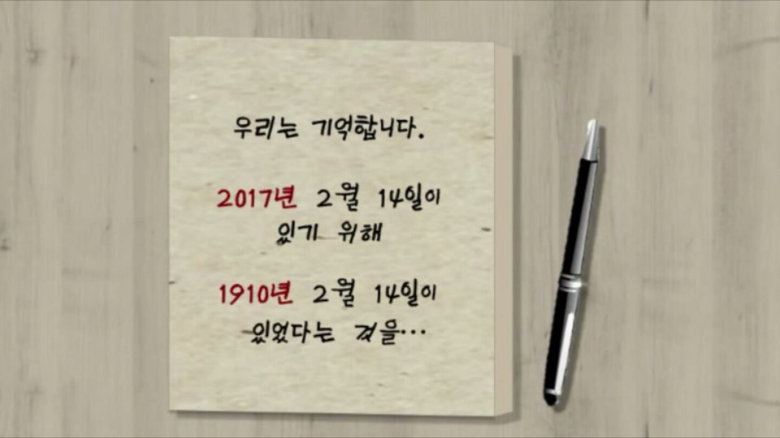 우리는 기억합니다.
2017년 2월 14일이
있기 위해
1910년 2월 14일이
있었다는 것을…